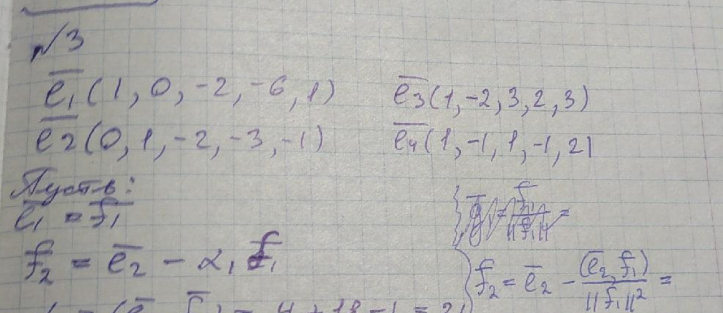 №3
e̅₁(1, 0, -2, -6, 1)  e̅₃(1, -2, 3, 2, 3)
e̅₂(0, 1, -2, -3, -1)  e̅₄(1, -1, 1, -1, 2)
Пусть:
e̅₁ = f̅₁
f̅₂ = e̅₂ - α₁ f̅₁
f̅₂ = e̅₂ - (e̅₂, f̅₁) / ||f̅₁||² =